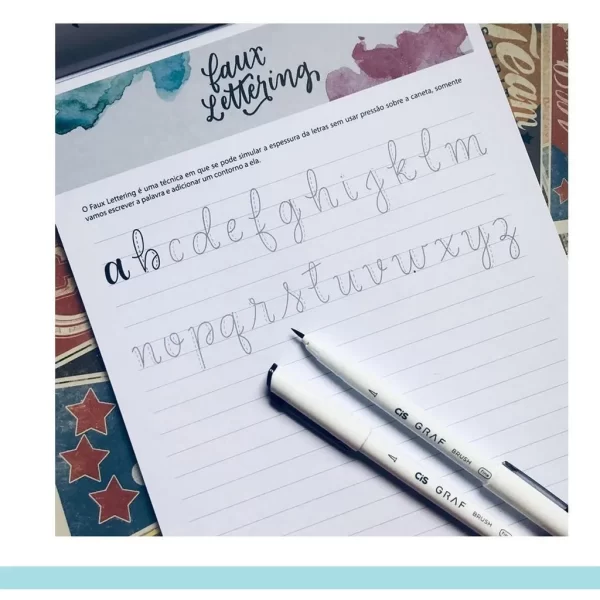 faux
Lettering
O Faux Lettering é uma técnica em que se pode simular a espessura da letras sem usar pressão sobre a caneta, somente
vamos escrever a palavra e adicionar um contorno a ela.
a b c d e f g h i j k l m
n o p q r s t u v w x y z
CiS GRAF BRUSH
CiS GRAF BRUSH
Team